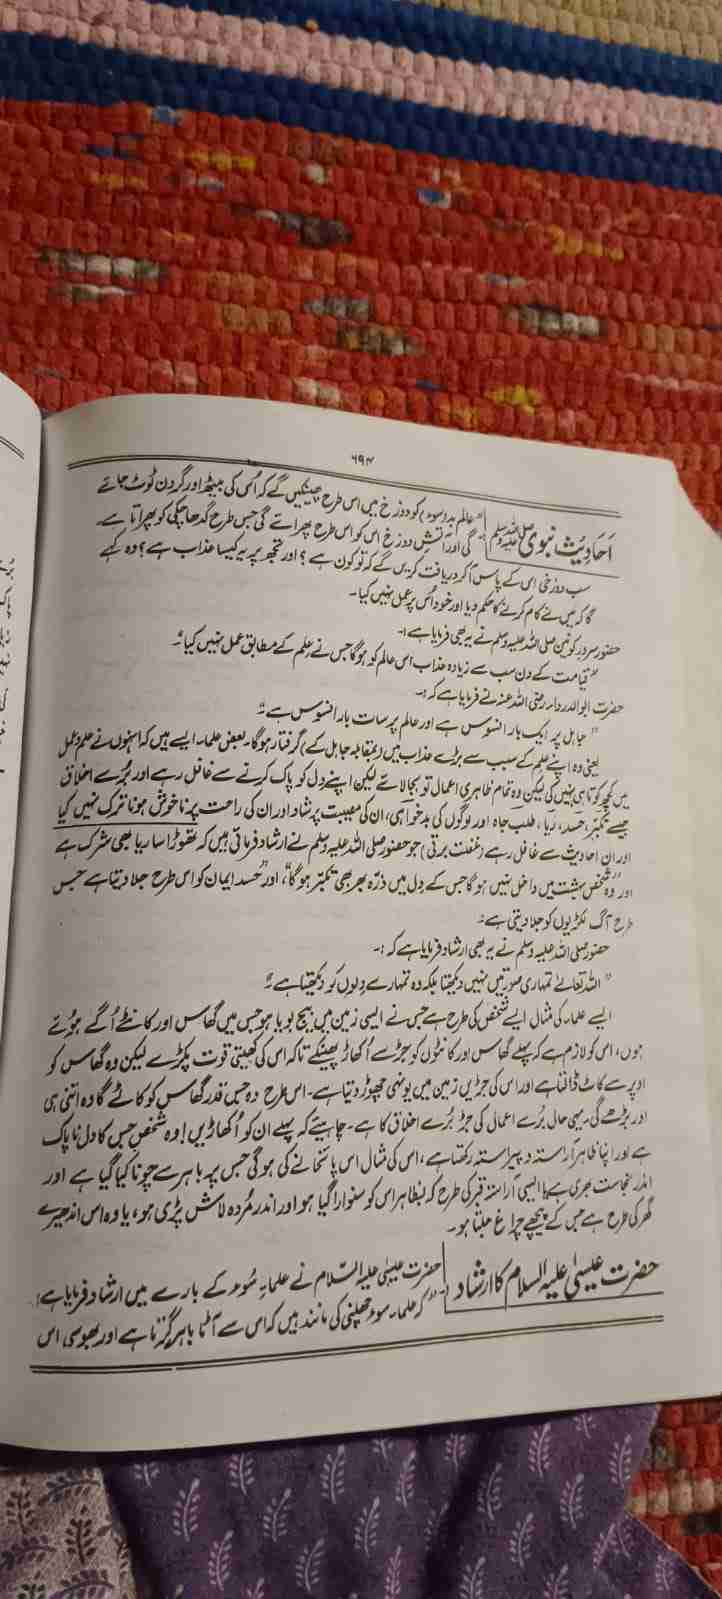 ۶۹۴
احادیث نبوی صلی اللہ علیہ وسلم
"عالم بد (سوء) کو دوزخ میں اس طرح پھینکیں گے کہ اُس کی پیٹھ اور گردن ٹوٹ جائے
گی اور آتشِ دوزخ اس کو اس طرح پھرائے گی جس طرح گدھا چکی کو پھراتا ہے۔
سب دوزخی اس کے پاس آ کر دریافت کریں گے کہ تو کون ہے؟ اور تجھ پر یہ کیسا عذاب ہے؟ وہ کہے
گا کہ میں نے کام کرنے کا حکم دیا اور خود اُس پر عمل نہیں کیا۔
حضور سرور کونین صلی اللہ علیہ وسلم نے یہ بھی فرمایا ہے:۔
"قیامت کے دن سب سے زیادہ عذاب اس عالم کو ہوگا جس نے علم کے مطابق عمل نہیں کیا"۔
حضرت ابوالدرداء رضی اللہ عنہ نے فرمایا ہے کہ:۔
"جاہل پر ایک بار افسوس ہے اور عالم پر سات بار افسوس ہے"۔
یعنی وہ اپنے علم کے سبب سے بڑے عذاب میں (بمقابلہ جاہل کے) گرفتار ہوگا۔ بعض علماء ایسے ہیں کہ انہوں نے علم و عمل
میں کچھ کوتاہی نہیں کی لیکن وہ تمام ظاہری اعمال تو بجا لائے لیکن اپنے دل کو پاک کرنے سے غافل رہے اور بُرے اخلاق
جیسے تکبر، حسد، ریا، طلب جاہ اور لوگوں کی بدخواہی، ان کی مصیبت پر شاد اور ان کی راحت پر ناخوش ہونا ترک نہیں کیا
اور ان احادیث سے غافل رہے (غفلت برتی) جو حضور صلی اللہ علیہ وسلم نے ارشاد فرمائی ہیں کہ تھوڑا سا ریا بھی شرک ہے
اور "وہ شخص بہشت میں داخل نہیں ہوگا جس کے دل میں ذرہ بھر بھی تکبر ہوگا"، اور "حسد ایمان کو اس طرح جلا دیتا ہے جس
طرح آگ لکڑیوں کو جلا دیتی ہے۔
حضور صلی اللہ علیہ وسلم نے یہ بھی ارشاد فرمایا ہے کہ:۔
"اللہ تعالےٰ تمہاری صورتیں نہیں دیکھتا بلکہ وہ تمہارے دلوں کو دیکھتا ہے"۔
ایسے علماء کی مثال ایسے شخص کی طرح ہے جس نے ایسی زمین میں بیج بویا ہو جس میں گھاس اور کانٹے اُگے ہوئے
ہوں، اس کو لازم ہے کہ پہلے گھاس اور کانٹوں کو جڑ سے اُکھاڑ پھینکے تاکہ اس کی کھیتی قوت پکڑے لیکن وہ گھاس کو
اوپر سے کاٹ ڈالتا ہے اور اس کی جڑیں زمین میں یونہی چھوڑ دیتا ہے۔ اس طرح وہ جس قدر گھاس کو کاٹے گا وہ اتنی ہی
اور بڑھے گی۔ یہی حال بُرے اعمال کی جڑ بُرے اخلاق کا ہے۔ چاہیئے کہ پہلے ان کو اُکھاڑیں! وہ شخص جس کا دل ناپاک
ہے اور اپنا ظاہر آراستہ و پیراستہ رکھتا ہے، اس کی مثال اس پائخانے کی ہوگی جس پر باہر سے چونا کیا گیا ہے اور
اندر نجاست بھری ہے یا ایسی آراستہ قبر کی طرح کہ بظاہر اس کو سنوارا گیا ہو اور اندر مُردہ لاش پڑی ہو، یا وہ اس اندھیرے
گھر کی طرح ہے جس کے پیچھے چراغ جلتا ہو۔
حضرت عیسیٰ علیہ السلام کا ارشاد
حضرت عیسیٰ علیہ السّلام نے علماءِ سُوء کے بارے میں ارشاد فرمایا ہے:
"کہ علماء سوء چھلنی کی مانند ہیں کہ اس سے آٹا باہر گرتا ہے اور بھوسی اس